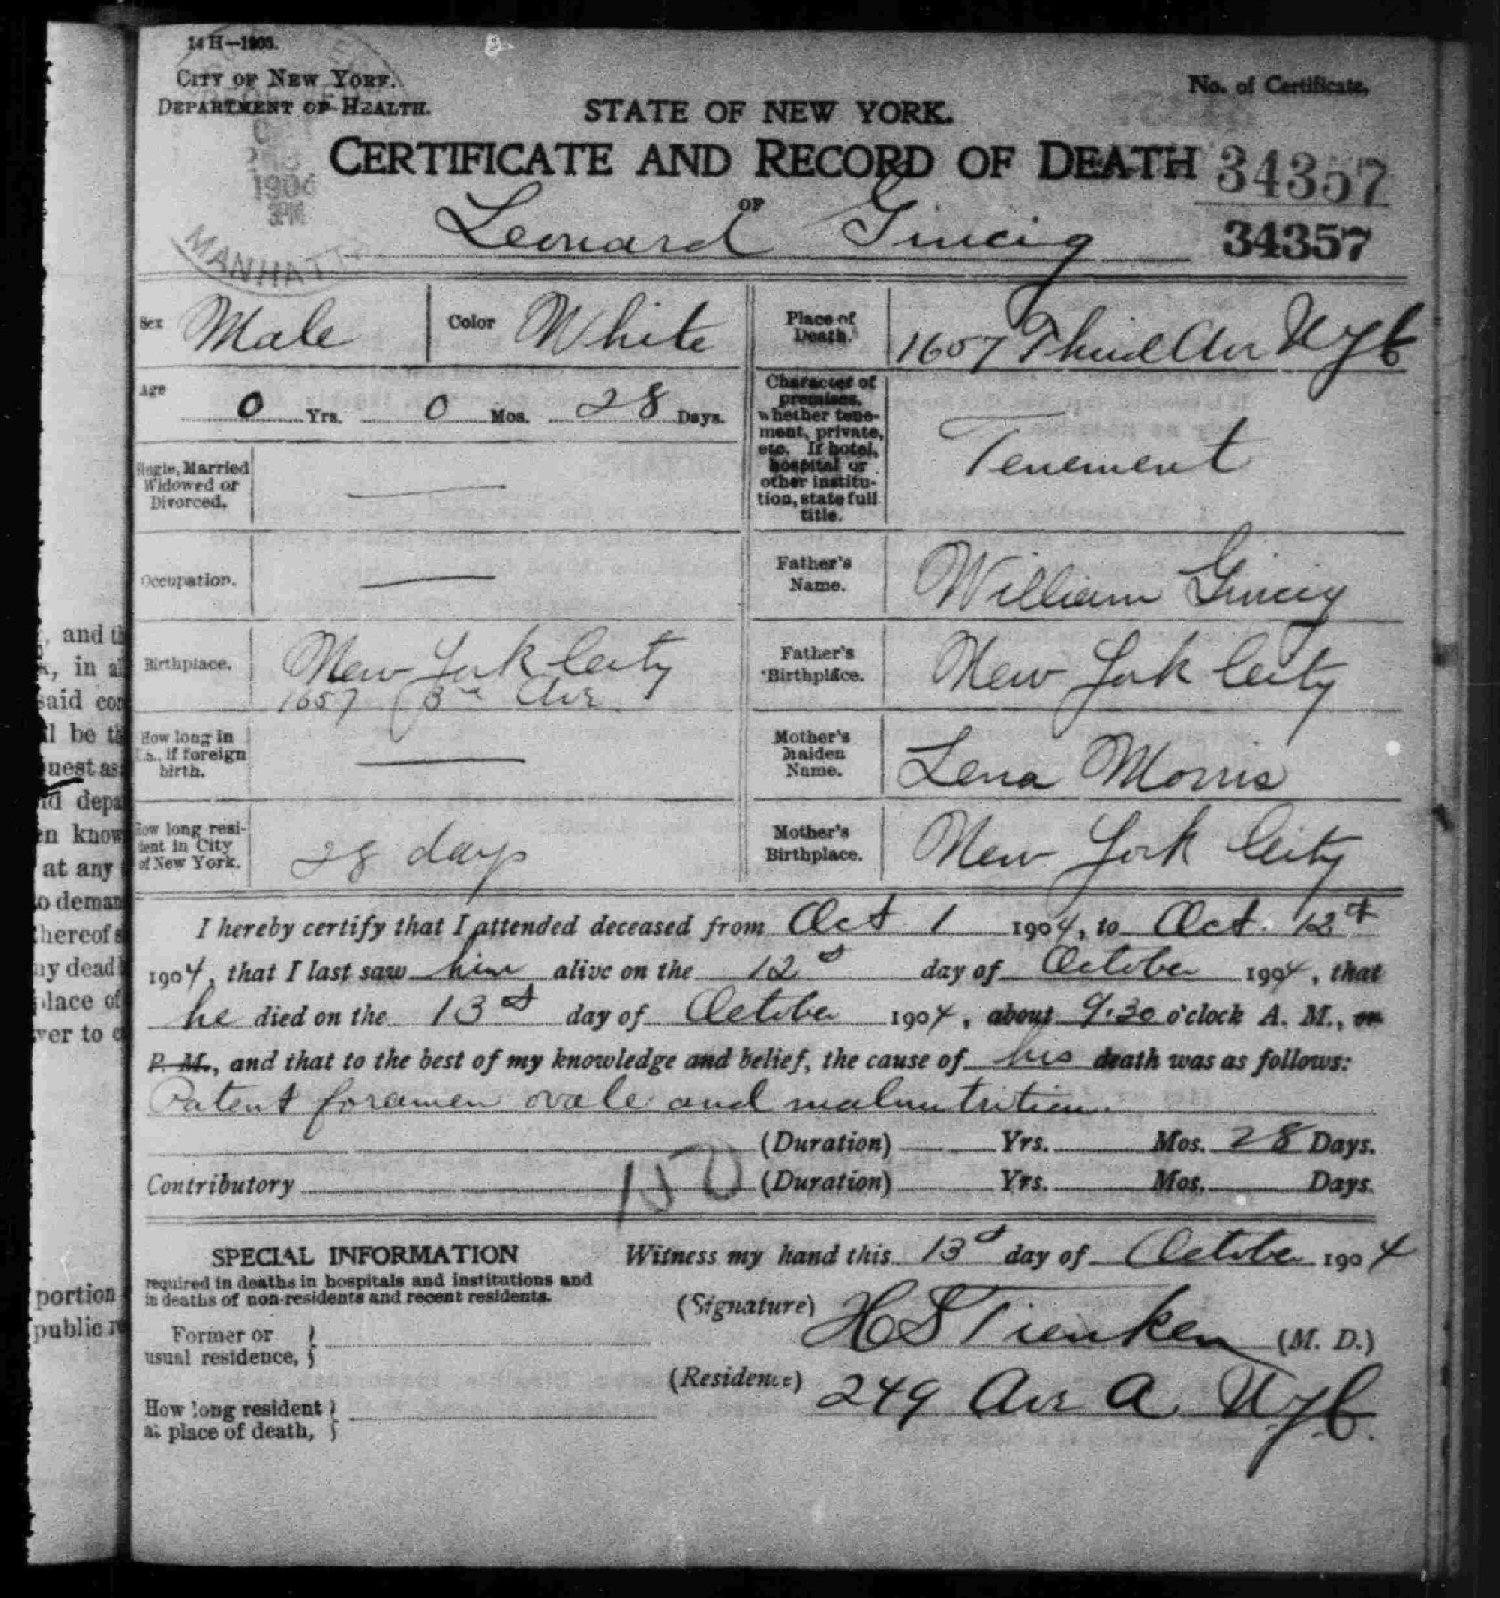 14 H—1903.
CITY OF NEW YORK.
DEPARTMENT OF HEALTH.
No. of Certificate,
STATE OF NEW YORK.
CERTIFICATE AND RECORD OF DEATH
34357
OF
Leonard Gincig
34357
1904
PM
MANHATT
Sex Male
Color White
Place of Death. 1657 Third Ave NYC
Age 0 Yrs. 0 Mos. 28 Days.
Character of premises, whether tenement, private, etc. If hotel, hospital or other institution, state full title.
Tenement
Single, Married Widowed or Divorced. —
Occupation. —
Father's Name. William Gincig
Birthplace. New York City
1657 3rd Ave.
Father's Birthplace. New York City
How long in U.S., if foreign birth. —
Mother's Maiden Name. Lena Morris
How long resident in City of New York. 28 days
Mother's Birthplace. New York City
I hereby certify that I attended deceased from Oct 1 1904, to Oct. 12d
1904, that I last saw him alive on the 12d day of October 1904, that
he died on the 13d day of October 1904, about 9.30 o'clock A. M., or
P. M., and that to the best of my knowledge and belief, the cause of his death was as follows:
Patent foramen ovale and malnutrition.
(Duration) Yrs. Mos. 28 Days.
150
Contributory (Duration) Yrs. Mos. Days.
SPECIAL INFORMATION
required in deaths in hospitals and institutions and
in deaths of non-residents and recent residents.
Former or
usual residence,
How long resident
at place of death,
Witness my hand this 13d day of October 1904
(Signature) H S Tienken (M. D.)
(Residence) 249 Ave A NYC.
and th
in al
said con
ll be th
quest as
depa
en know
at any
to deman
thereof s
ny dead
place of
ver to
portion
public re